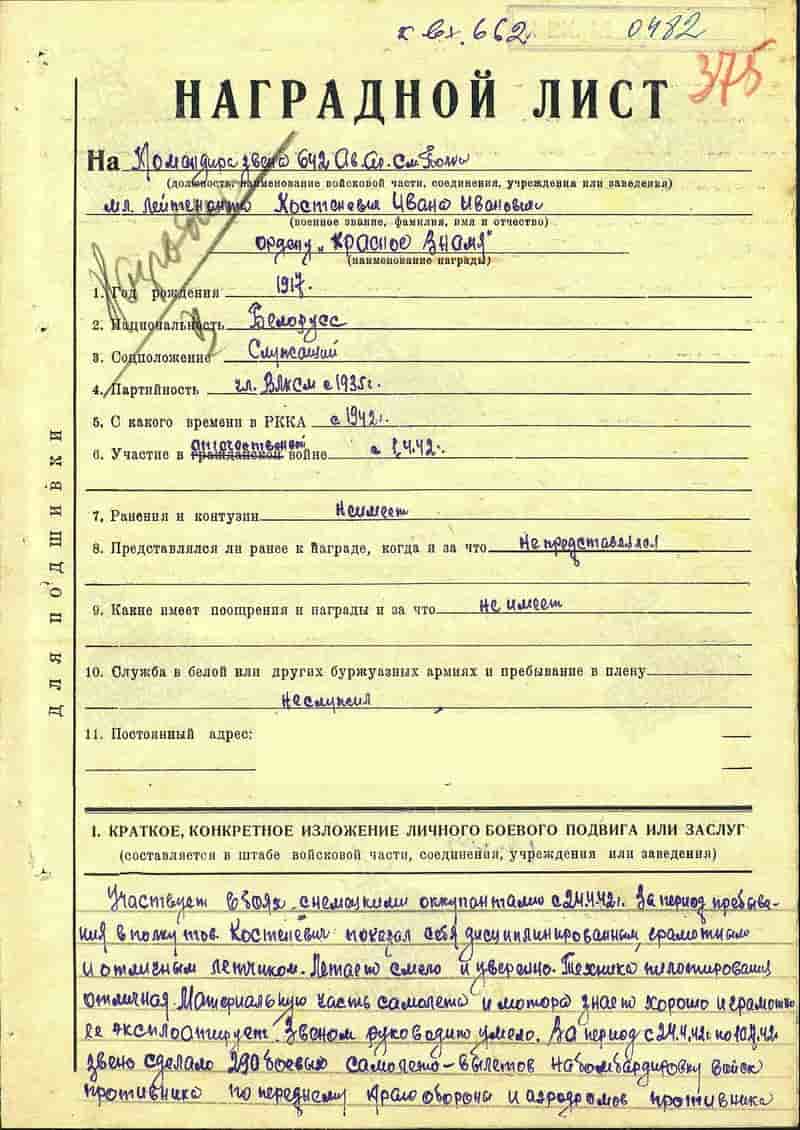 к вх. 662
0482
375
НАГРАДНОЙ ЛИСТ
На Командира звена 642 Ав.
(должность, наименование войсковой части, соединения, учреждения или заведения)
мл. лейтенанта Костеневич Ивана Ивановича
(военное звание, фамилия, имя и отчество)
ордену „Красное Знамя"
(наименование награды)
1. Год рождения 1917.
2. Национальность Белорусс
3. Соцположение Служащий
4. Партийность чл. ВЛКСМ с 1935г.
5. С какого времени в РККА с 1942г.
6. Участие в гражданской отечественной войне с 4.42г.
7. Ранения и контузии Неимеет
8. Представлялся ли ранее к награде, когда и за что Не представлялся
9. Какие имеет поощрения и награды и за что не имеет
10. Служба в белой или других буржуазных армиях и пребывание в плену
Неслужил
11. Постоянный адрес:
ДЛЯ ПОДШИВКИ
I. КРАТКОЕ, КОНКРЕТНОЕ ИЗЛОЖЕНИЕ ЛИЧНОГО БОЕВОГО ПОДВИГА ИЛИ ЗАСЛУГ
(составляется в штабе войсковой части, соединения, учреждения или заведения)
Участвует в боях с немецкими оккупантами с 24.4.42г. За период пребыва-
ния в полку тов. Костеневич показал себя дисциплинированным, грамотным
и отличным летчиком. Летает смело и уверенно. Техника пилотирования
отличная. Материальную часть самолета и мотора знает хорошо и грамотно
ее эксплоатирует. Звеном руководит умело. За период с 24.4.42г. по
звено сделало 290 боевых самолето-вылетов на бомбардировку войск
противника по переднему краю обороны и аэродромов противника